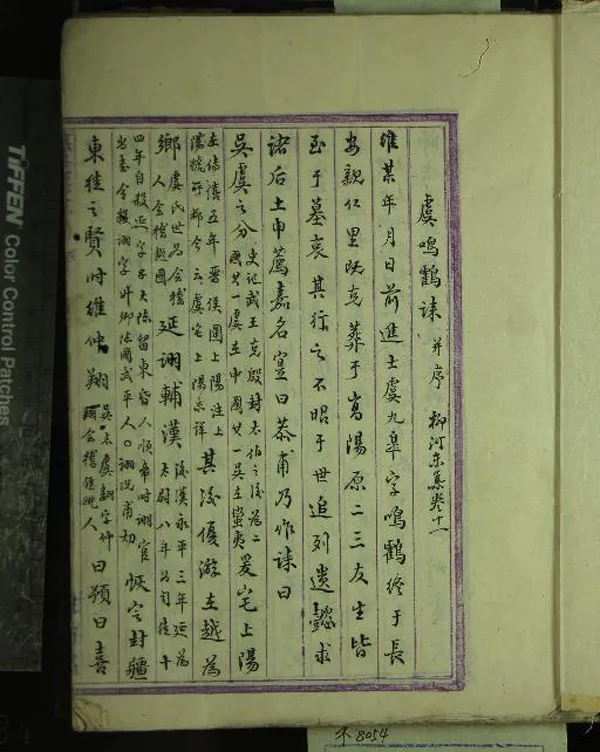 虞鳴鶴誄 并序 柳河东集卷十一
維某年月日前進士虞九皋字鳴鶴終于長
安親仁里既克葬于高陽原二三友生皆
至于墓哀其行之不昭于世追列遺懿求
諸后土申薦嘉名宣曰恭甫乃作誄曰
吳虞之分 史記武王克殷封太伯之後為二
國其一虞在中國其一吳在蠻夷 爰宅上陽
左傳僖五年晉侯圍上陽注上
陽虢所都今云虞宅上陽未詳 其後優游在越為
鄉 虞氏世為會稽
人會稽越國 延詡輔漢 後漢永平三年延為
太尉八年為司徒十
四年自殺延字子大陳留東昏人順帝時詡官
尚書令詡字升卿陳國武平人○詡況甫切 恢定封疆
東徒之賢時惟仲翔 吳志虞翻字仲
翔會稽餘姚人 曰預曰喜
TIFFEN Color Control Patches
8054